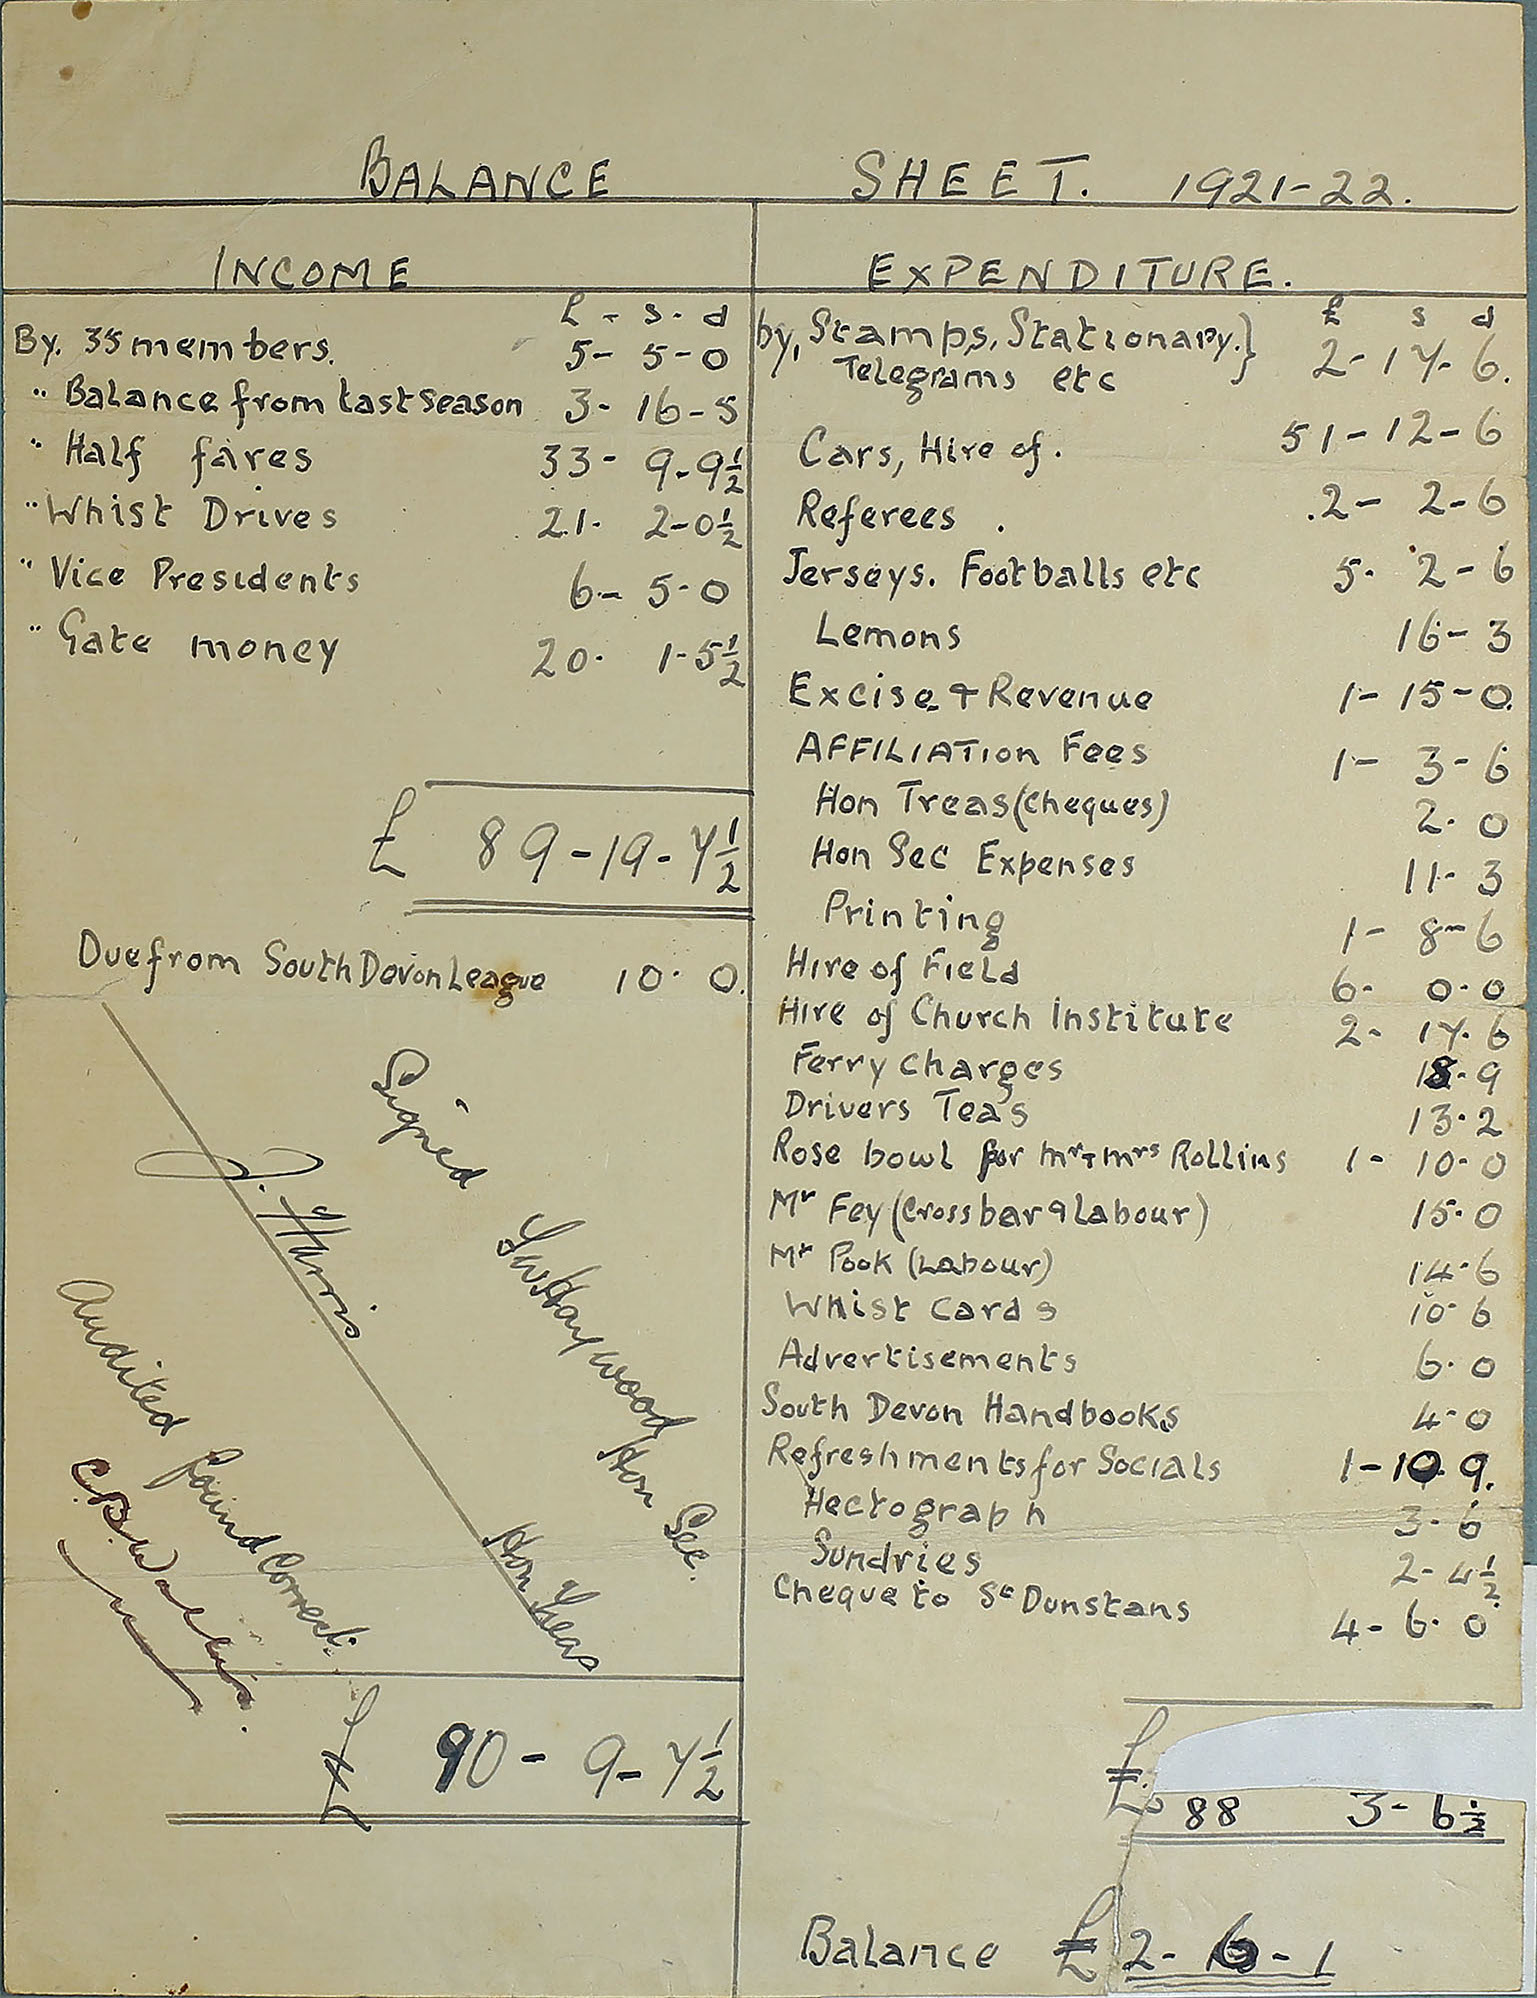 BALANCE SHEET. 1921-22.
INCOME
£ - s - d
By. 35 members. 5 - 5 - 0
" Balance from last season 3 - 16 - 5
" Half fares 33 - 9 - 9½
" Whist Drives 21 - 2 - 0½
" Vice Presidents 6 - 5 - 0
" Gate money 20 - 1 - 5½
£ 89 - 19 - 7½
Due from South Devon League 10 - 0.
Signed
J. Harris
Hon Treas
Haywood
Hon Sec.
Audited found Correct.
C.B.
£ 90 - 9 - 7½
EXPENDITURE.
£ s d
by, Stamps, Stationary. }
Telegrams etc } 2 - 17 - 6.
Cars, Hire of. 51 - 12 - 6
Referees . 2 - 2 - 6
Jerseys. Footballs etc 5 - 2 - 6
Lemons 16 - 3
Excise + Revenue 1 - 15 - 0.
AFFILIATION Fees 1 - 3 - 6
Hon Treas (Cheques) 2 - 0
Hon Sec Expenses 11 - 3
Printing 1 - 8 - 6
Hire of Field 6 - 0 - 0
Hire of Church Institute 2 - 17 - 6
Ferry Charges 18 - 9
Drivers Tea's 13 - 2
Rose bowl for Mr + Mrs Rollins 1 - 10 - 0
Mr Fey (Crossbar & labour) 15 - 0
Mr Pook (Labour) 14 - 6
Whist Cards 10 - 6
Advertisements 6 - 0
South Devon Handbooks 4 - 0
Refreshments for Socials 1 - 10 - 9.
Hectograph 3 - 6
Sundries 2 - 4½
Cheque to St Dunstans 4 - 6 - 0
£. 88 3 - 6½
Balance £ 2 - 6 - 1